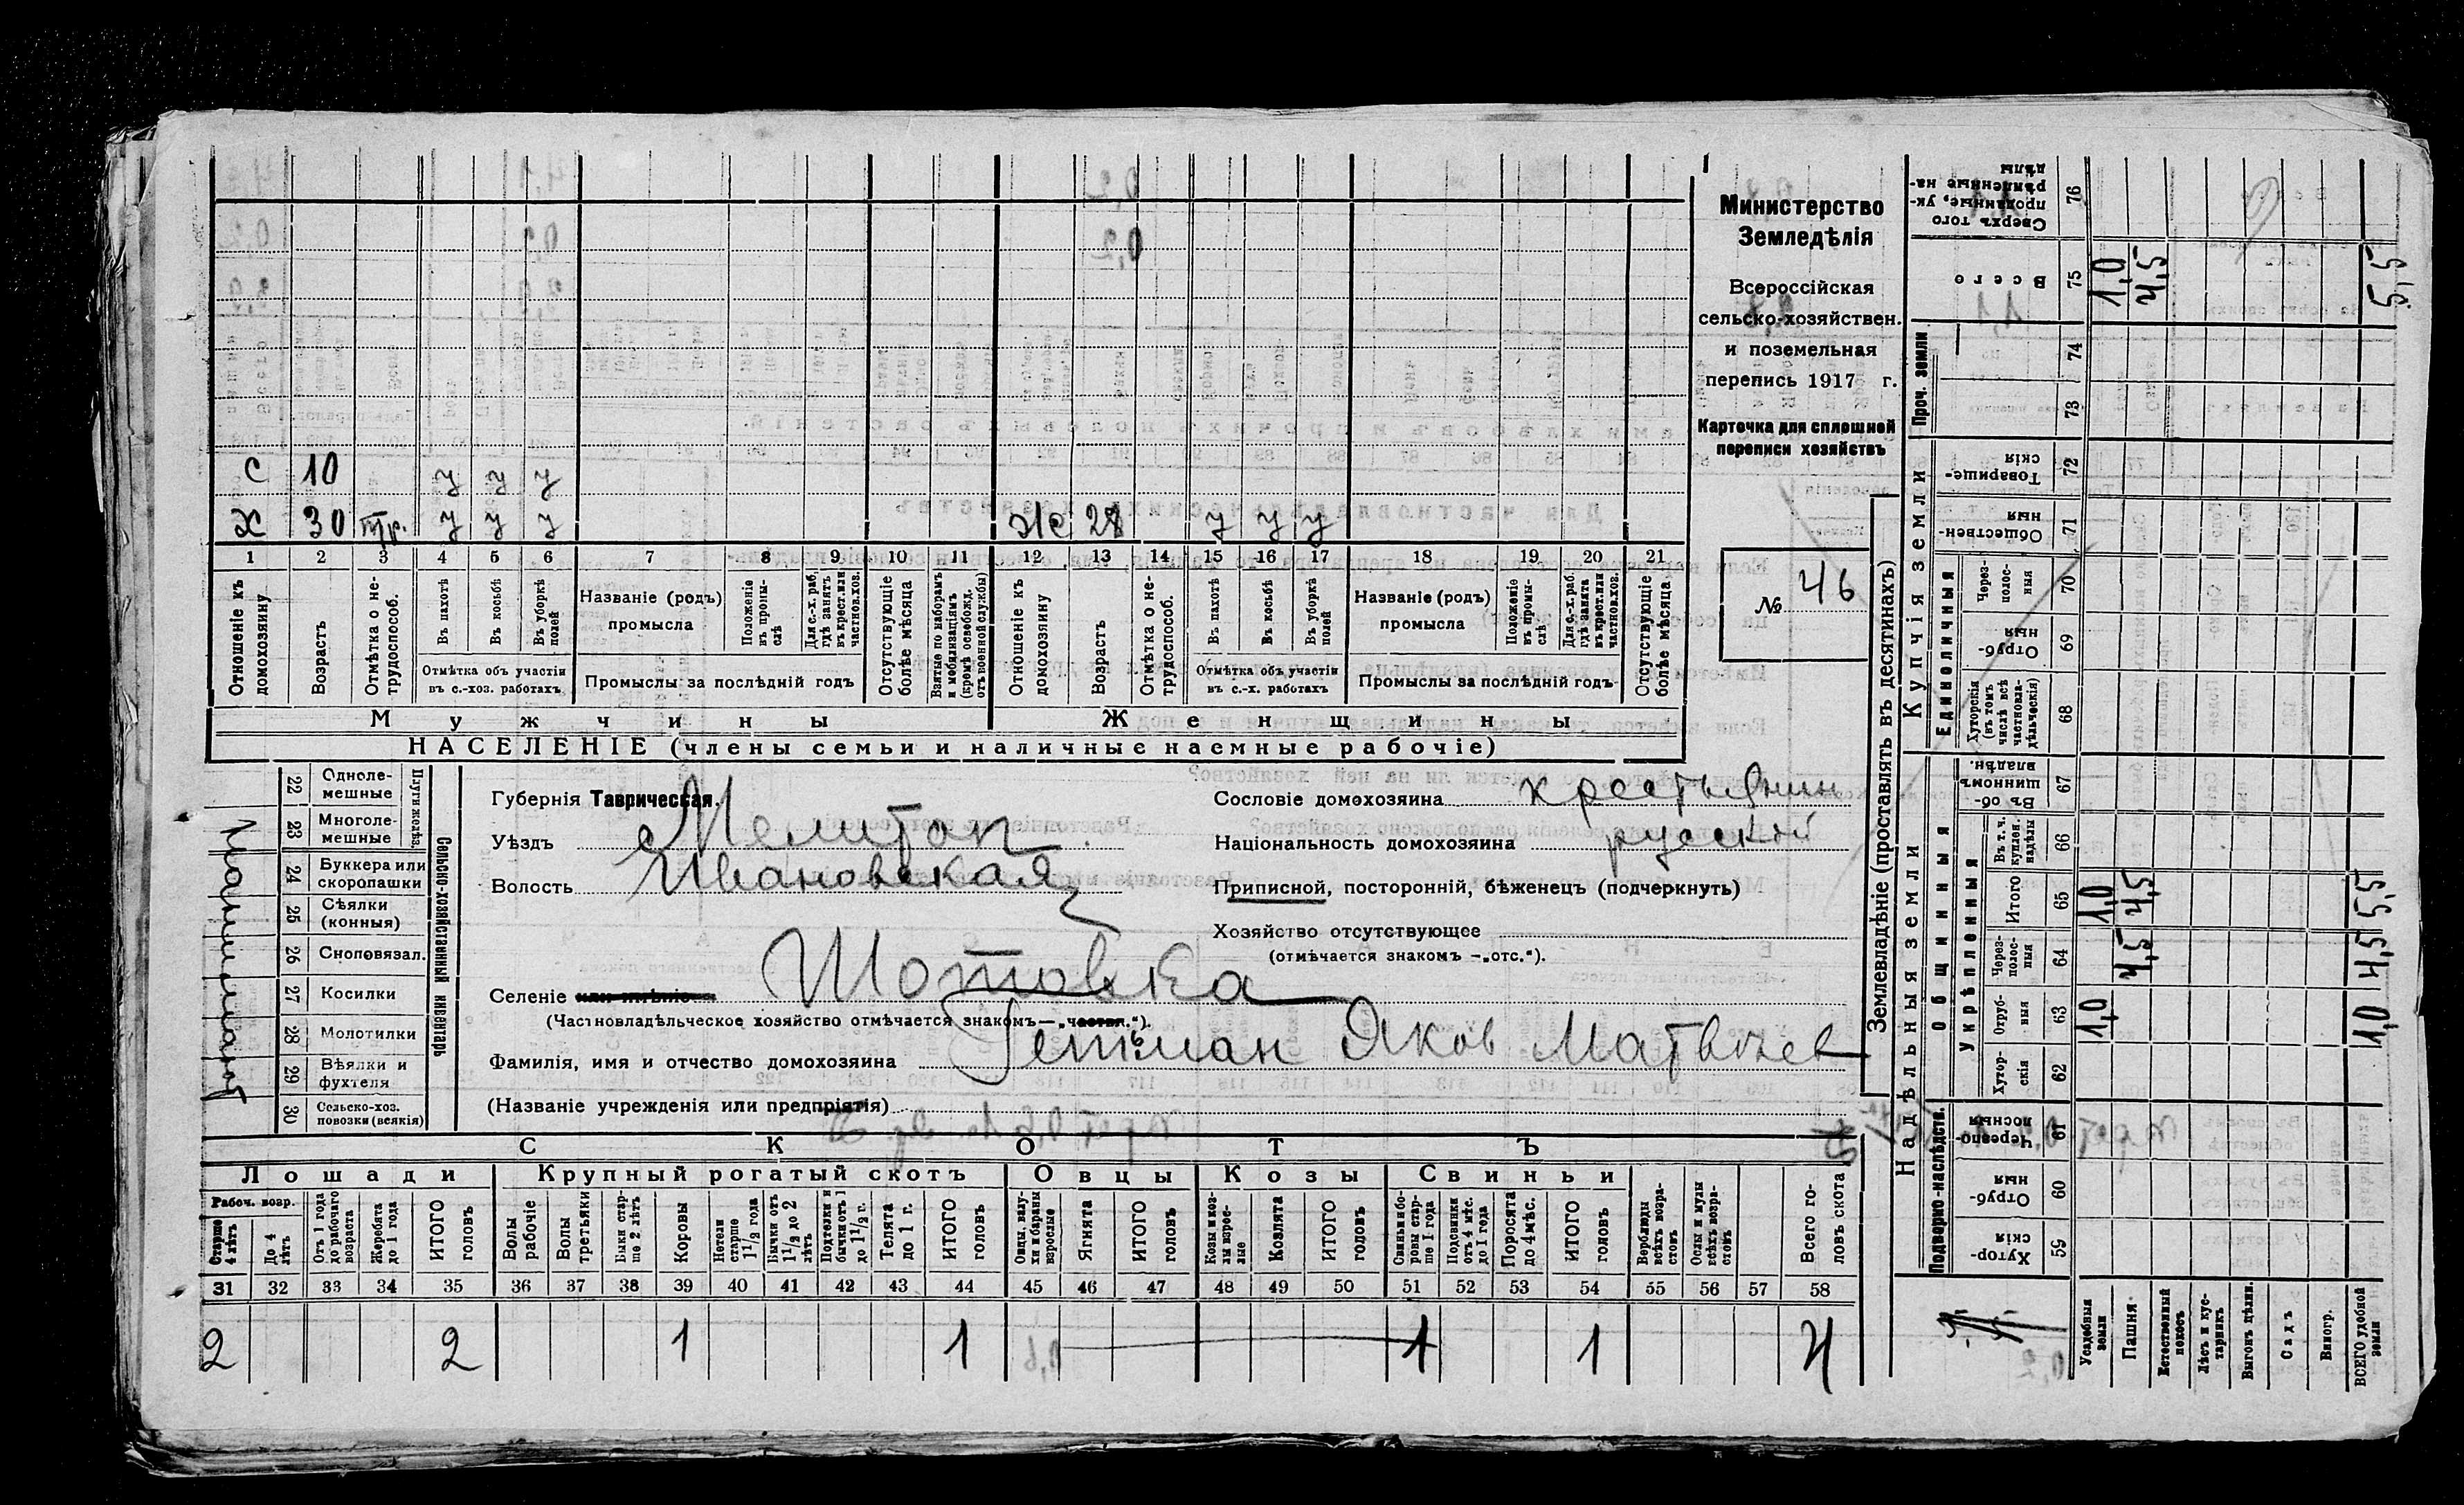 С 10 у у у
Х 30 тр. у у у Ж 28 у у у
1 2 3 4 5 6 7 8 9 10 11 12 13 14 15 16 17 18 19 20 21
Отношеніе къ домохозяину.
Возрастъ
Отмѣтка о не-трудоспособ.
Въ пахотѣ
Въ косьбѣ
Въ уборкѣ полей
Отмѣтка объ участіи
въ с.-хоз. работахъ
Названіе (родъ)
промысла
Положеніе въ промы-слѣ
Для с.-х. раб. гдѣ занятъ въ крест. или частнов. хоз.
Промыслы за послѣдній годъ
Отсутствующіе болѣе мѣсяца
Взятые по наборамъ и мобилизаціямъ (кромѣ освобожд. отъ военной службы)
Отношеніе къ домохозяину
Возрастъ
Отмѣтка о не-трудоспособ.
Въ пахотѣ
Въ косьбѣ
Въ уборкѣ полей
Отмѣтка объ участіи
въ с.-х. работахъ
Названіе (родъ)
промысла
Положеніе въ промы-слѣ
Для с.-х. раб. гдѣ занята въ крест. или частнов. хоз.
Промыслы за послѣдній годъ
Отсутствующіе болѣе мѣсяца
Мужчины Женщины
НАСЕЛЕНІЕ (члены семьи и наличные наемные рабочіе)
Министерство
Земледѣлія
Всероссійская
сельско-хозяйствен.
и поземельная
перепись 1917 г.
Карточка для сплошной
переписи хозяйствъ
№ 46
Сельско-хозяйственный инвентарь
Плуги желѣз.
22 Одноле-мешные
23 Многоле-мешные
24 Буккера или скоропашки
25 Сѣялки (конныя)
26 Сноповязал.
27 Косилки
28 Молотилки
29 Вѣялки и фухтеля
30 Сельско-хоз. повозки (всякія)
Губернія Таврическая.
Уѣздъ Мелитоп
Волость Ивановская
Селеніе или имѣніе Шотовка
(Частновладѣльческое хозяйство отмѣчается знакомъ—„частн.“).
Фамилія, имя и отчество домохозяина Гетман Яков Матвѣев
(Названіе учрежденія или предпріятія)
Сословіе домохозяина крестьянин
Національность домохозяина русский
Приписной, посторонній, бѣженецъ (подчеркнуть)
Хозяйство отсутствующее
(отмѣчается знакомъ —„отс.“).
СКОТЪ
Лошади Крупный рогатый скотъ Овцы Козы Свиньи
Рабоч. возр.
Старше 4 лѣтъ
До 4 лѣтъ
Отъ 1 года до рабочаго возраста
Жеребята до 1 года
ИТОГО головъ
Волы рабочіе
Волы третьяки
Быки стар-ше 2 лѣтъ
Коровы
Нетели старше 1 1/2 года
Бычки отъ 1 1/2 до 2 лѣтъ
Подтелки и бычки отъ 1 до 1 1/2 г.
Телята до 1 г.
ИТОГО головъ
Овцы, валу-хи и бараны взрослые
Ягнята
ИТОГО головъ
Козы и коз-лы взрос-лые
Козлята
ИТОГО головъ
Свиньи бо-ровы стар-ше 1 года
Подсвинки отъ 4 мѣс. до 1 года
Поросята до 4 мѣс.
ИТОГО головъ
Верблюды всѣхъ возра-стовъ
Ослы и мулы всѣхъ возра-стовъ
Всего го-ловъ скота
31 32 33 34 35 36 37 38 39 40 41 42 43 44 45 46 47 48 49 50 51 52 53 54 55 56 57 58
2 2 1 1 1 1 4
Землевладѣніе (проставлять въ десятинахъ)
Надѣльныя земли
Купчія земли
Проч. земли
Подворно-наслѣдств.
Общинныя
Укрѣпленныя
Единоличныя
Хутор-скія 59
Отруб-ныя 60
Черезпо-лосныя 61
Хутор-скія 62
Отруб-ныя 63 1,0 1,0
Через-полос-ныя 64 4,5 4,5
Итого 65 1,0 4,5 5,5
Въ т. ч. куплен. надѣлы 66
Въ об-щинномъ владѣн. 67
Хуторскія (въ томъ числѣ всѣ частновла-дѣльческія) 68
Отруб-ныя 69
Через-полос-ныя 70
Обществен-ныя 71
Товарище-скія 72
73
74
Всего 75 1,0 4,5 5,5
Сверхъ того проданные, ук-рѣпленные на-дѣлы 76
Усадебныя земли
Пашня
Естественный покосъ
Лѣсъ и кус-тарникъ
Выгонъ цѣлин.
Садъ
Виногр.
ВСЕГО удобной земли